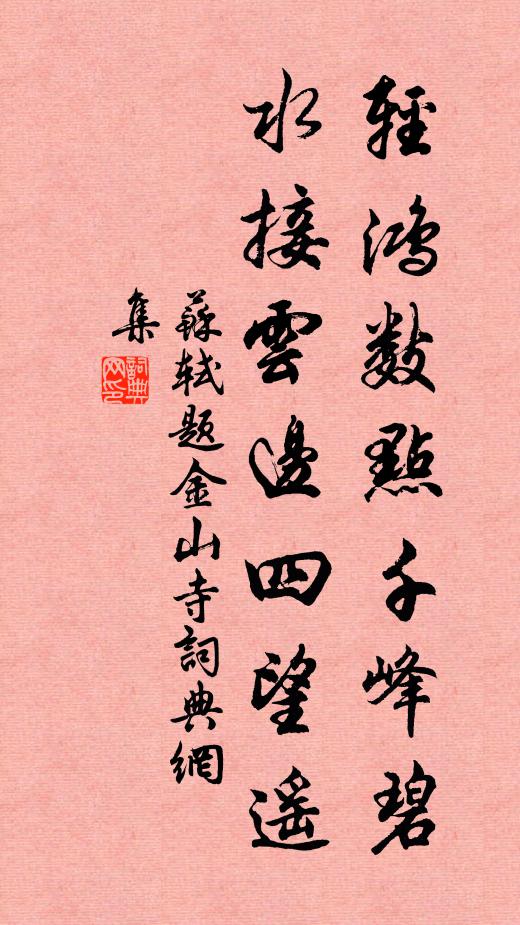 輕鴻數點千峰碧
水接雲邊四望遥
蘇軾题金山寺詞典網
集
詞典网印